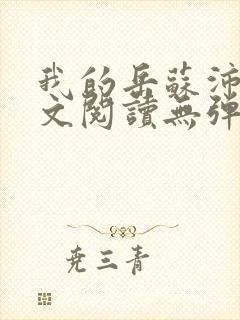 我的岳蘇沛
文閱讀無彈
尭三青